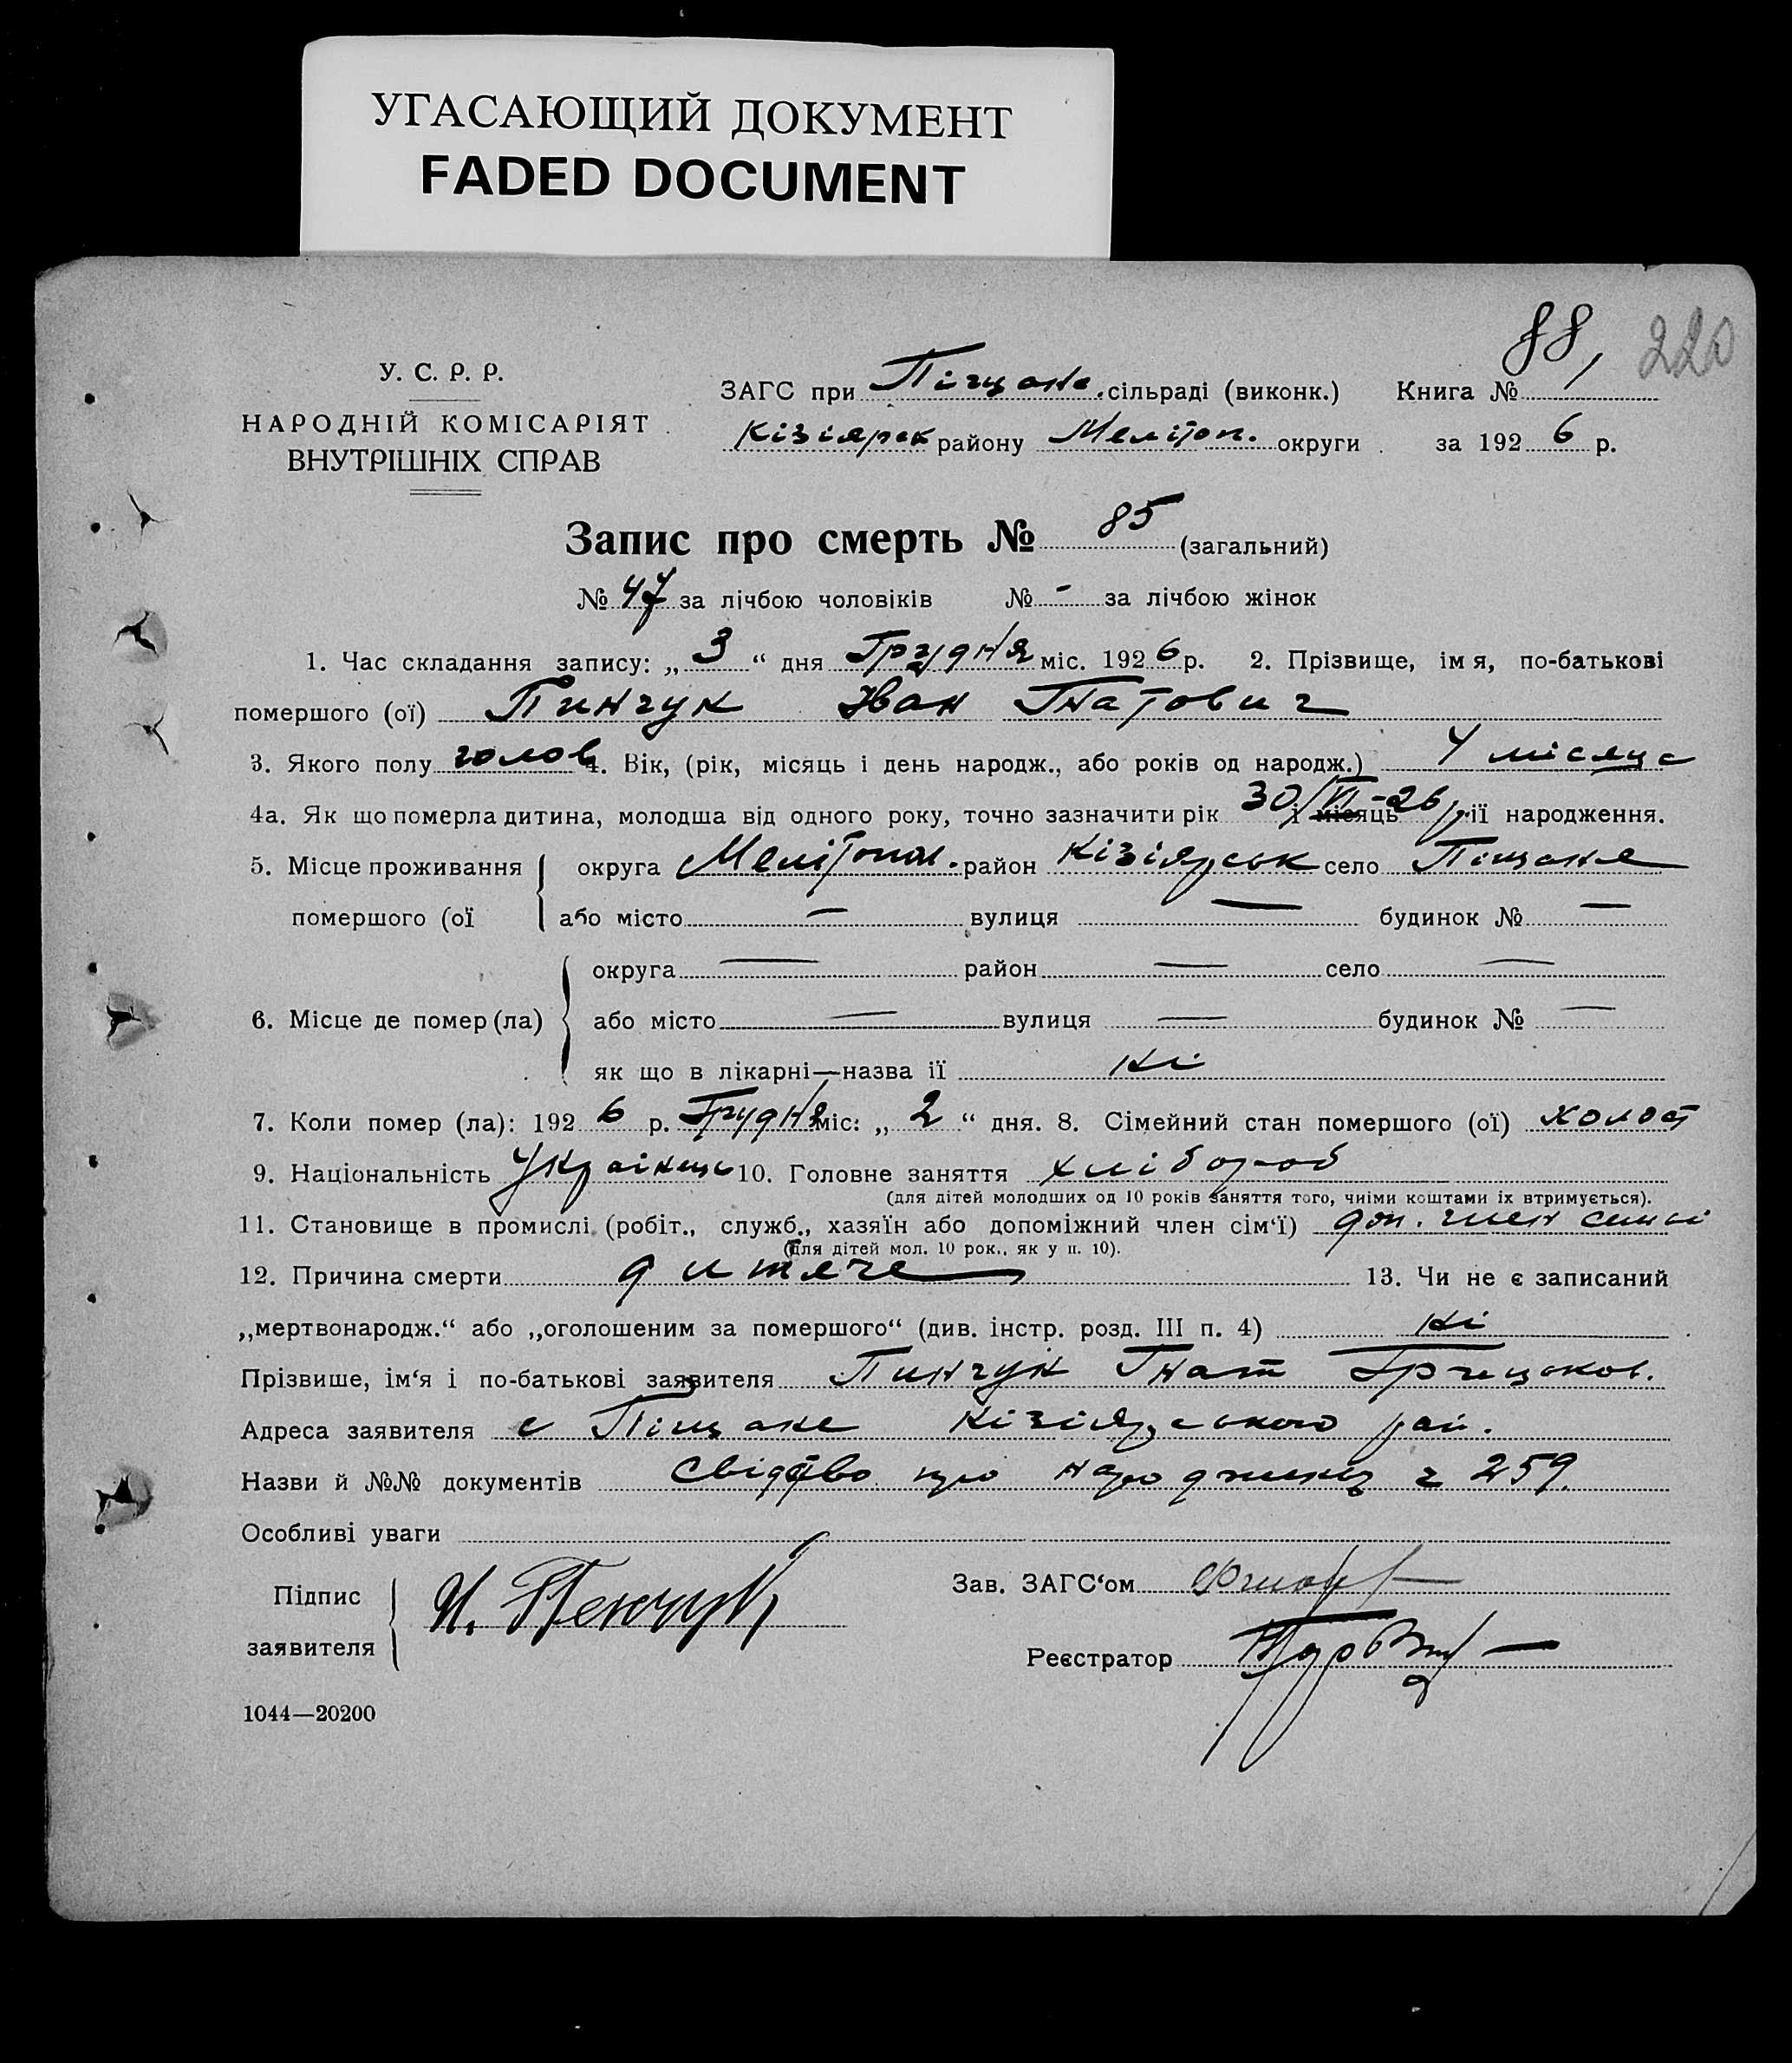 УГАСАЮЩИЙ ДОКУМЕНТ
FADED DOCUMENT
88, 220
У. С. Р. Р.
НАРОДНІЙ КОМІСАРІЯТ
ВНУТРІШНІХ СПРАВ
ЗАГС при Піщане сільраді (виконк.) Книга № 1
Кізіярск району Мелітоп. округи за 1926 р.
Запис про смерть № 85 (загальний)
№ 47 за лічбою чоловіків № - за лічбою жінок
1. Час складання запису: „ 3 “ дня Грудня міс. 1926 р. 2. Прізвище, ім я, по-батькові
помершого (ої) Пинчук Іван Гнатович
3. Якого полу чолов 4. Вік, (рік, місяць і день народж., або років од народж.) 4 місяце
4а. Як що померла дитина, молодша від одного року, точно зазначити рік 30/VI-26 р. і місяць її народження.
5. Місце проживання округа Мелітопол. район Кізіярськ село Піщане
помершого (ої або місто — вулиця — будинок № —
округа — район — село —
6. Місце де помер (ла) або місто — вулиця — будинок № —
як що в лікарні—назва ії Ні
7. Коли помер (ла): 1926 р. Грудня міс: „ 2 “ дня. 8. Сімейний стан помершого (ої) холост
9. Національність Українець 10. Головне заняття хлібороб
(для дітей молодших од 10 років заняття того, чиїми коштами їх втримується).
11. Становище в промислі (робіт., служб., хазяїн або допоміжний член сім‘ї) доп. член
(для дітей мол. 10 рок., як у п. 10).
12. Причина смерти дитяче 13. Чи не є записаний
„мертвонародж.“ або „оголошеним за помершого“ (див. інстр. розд. III п. 4) Ні
Прізвише, ім‘я і по-батькові заявителя Пинчук Гнат Грицьков.
Адреса заявителя с Піщане Кізіярського рай.
Назви й №№ документів Свідотво про 259.
Особливі уваги
Підпис
заявителя
Зав. ЗАГС‘ом
Реєстратор
1044—20200